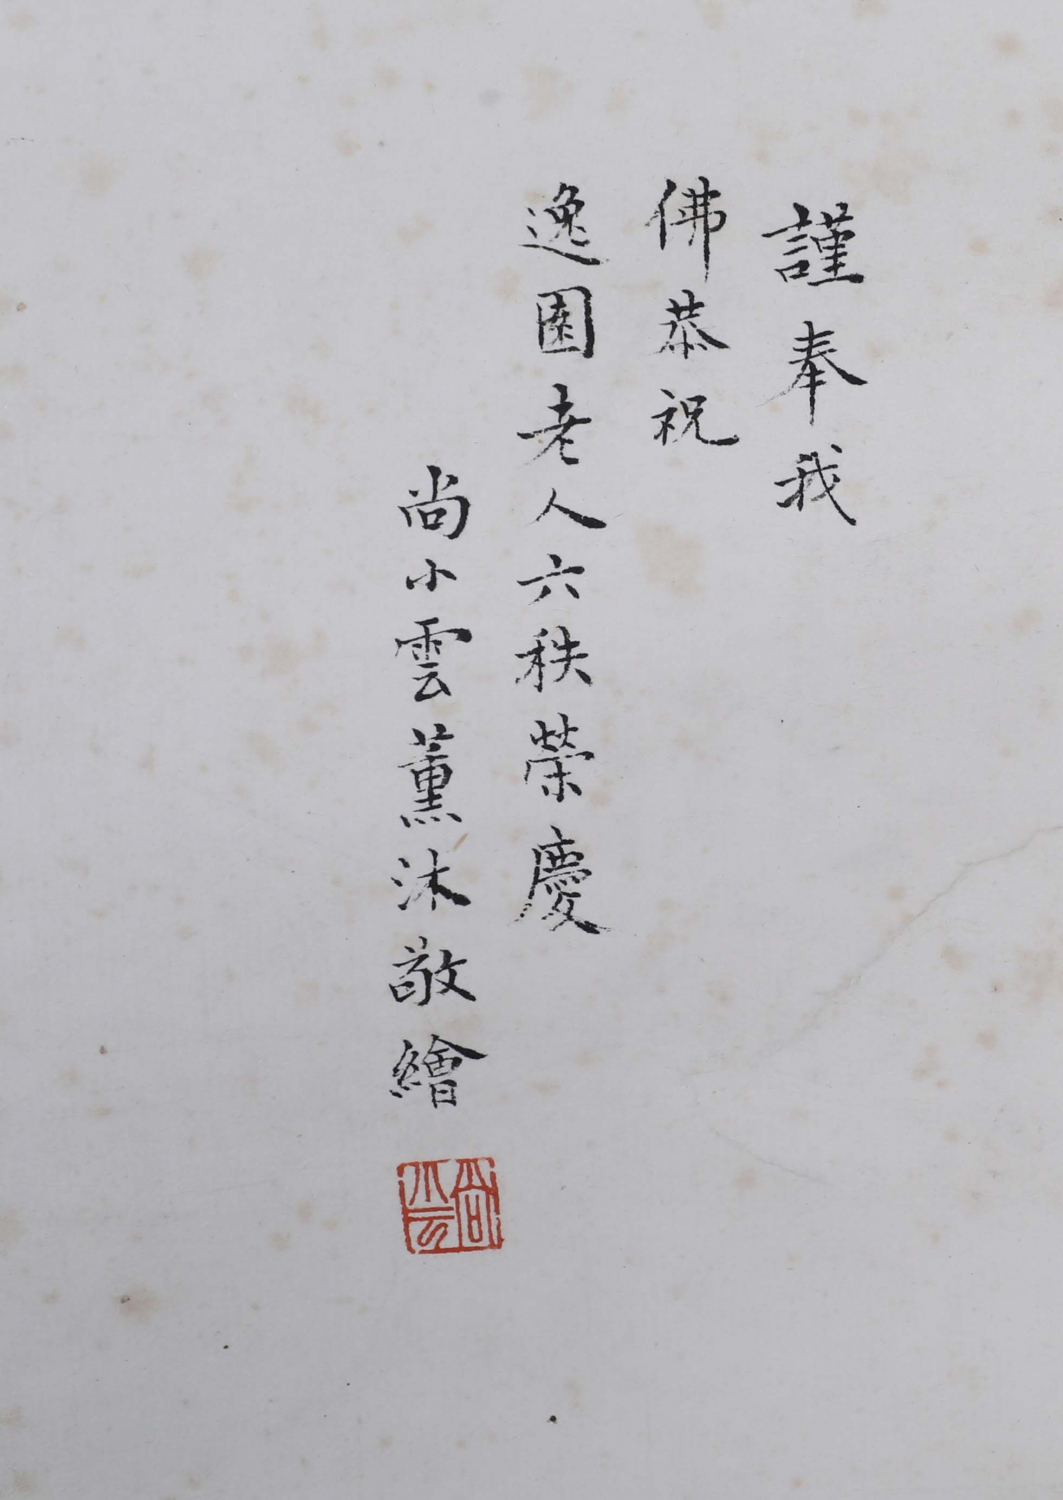 謹奉我
佛恭祝
逸園老人六秩榮慶
尚小雲薰沐敬繪
尚小雲